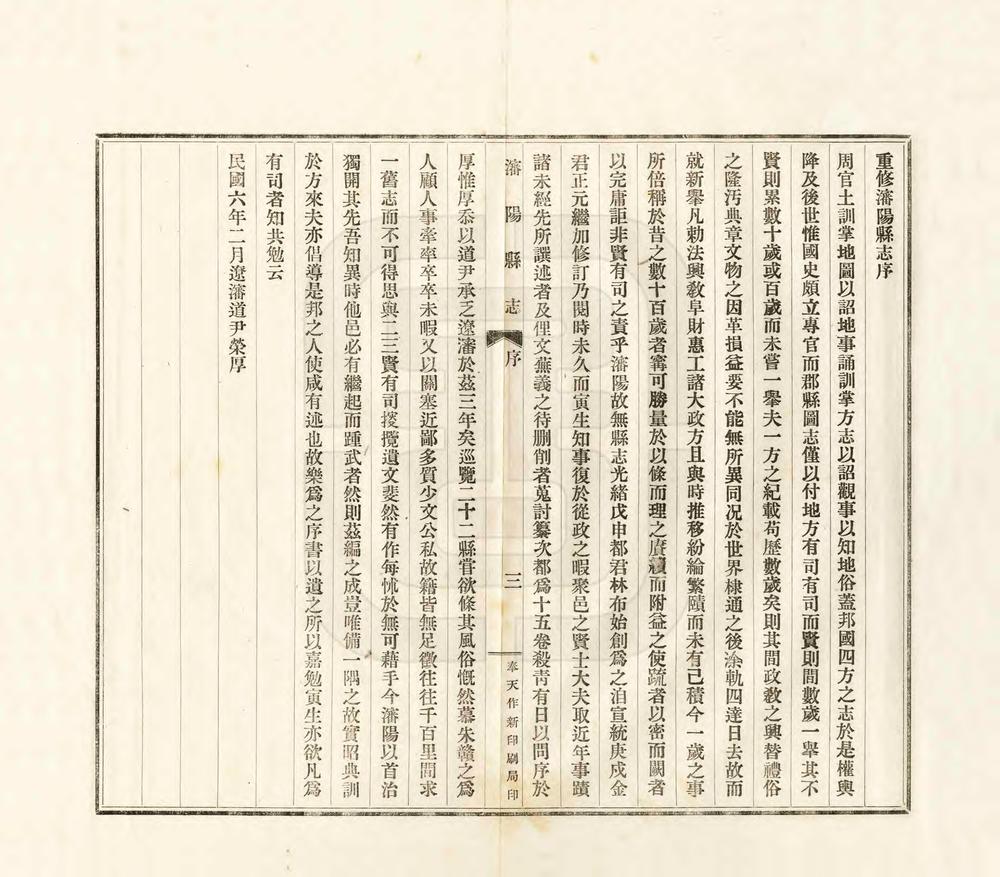 重修瀋陽縣志序
周官土訓掌地圖以詔地事誦訓掌方志以詔觀事以知地俗蓋邦國四方之志於是權輿
降及後世惟國史頗立專官而郡縣圖志僅以付地方有司有司而賢則間數歲一舉其不
賢則累數十歲或百歲而未嘗一舉夫一方之紀載苟歷數歲矣則其間政教之興替禮俗
之隆汚典章文物之因革損益要不能無所異同况於世界棣通之後涂軌四達日去故而
就新舉凡勅法興教阜財惠工諸大政方且與時推移紛綸繁賾而未有已積今一歲之事
所倍稱於昔之數十百歲者寗可勝量於以條而理之賡續而附益之使疏者以密而闕者
以完庸詎非賢有司之責乎瀋陽故無縣志光緒戊申都君林布始創爲之洎宣統庚戌金
君正元繼加修訂乃閱時未久而寅生知事復於從政之暇聚邑之賢士大夫取近年事蹟
諸未經先所譔述者及俚文蕪義之待删削者蒐討纂次都爲十五卷殺青有日以問序於
瀋陽縣志 序 三 奉天作新印刷局印
厚惟厚忝以道尹承乏遼瀋於茲三年矣巡覽二十二縣嘗欲條其風俗慨然慕朱贛之爲
人顧人事牽率卒卒未暇又以關塞近鄙多質少文公私故籍皆無足徵往往千百里間求
一舊志而不可得思與二三賢有司掇攬遺文斐然有作每怵於無可藉手今瀋陽以首治
獨開其先吾知異時他邑必有繼起而踵武者然則茲編之成豈唯備一隅之故實昭典訓
於方來夫亦倡導是邦之人使咸有述也故樂爲之序書以遺之所以嘉勉寅生亦欲凡爲
有司者知共勉云
民國六年二月遼瀋道尹榮厚